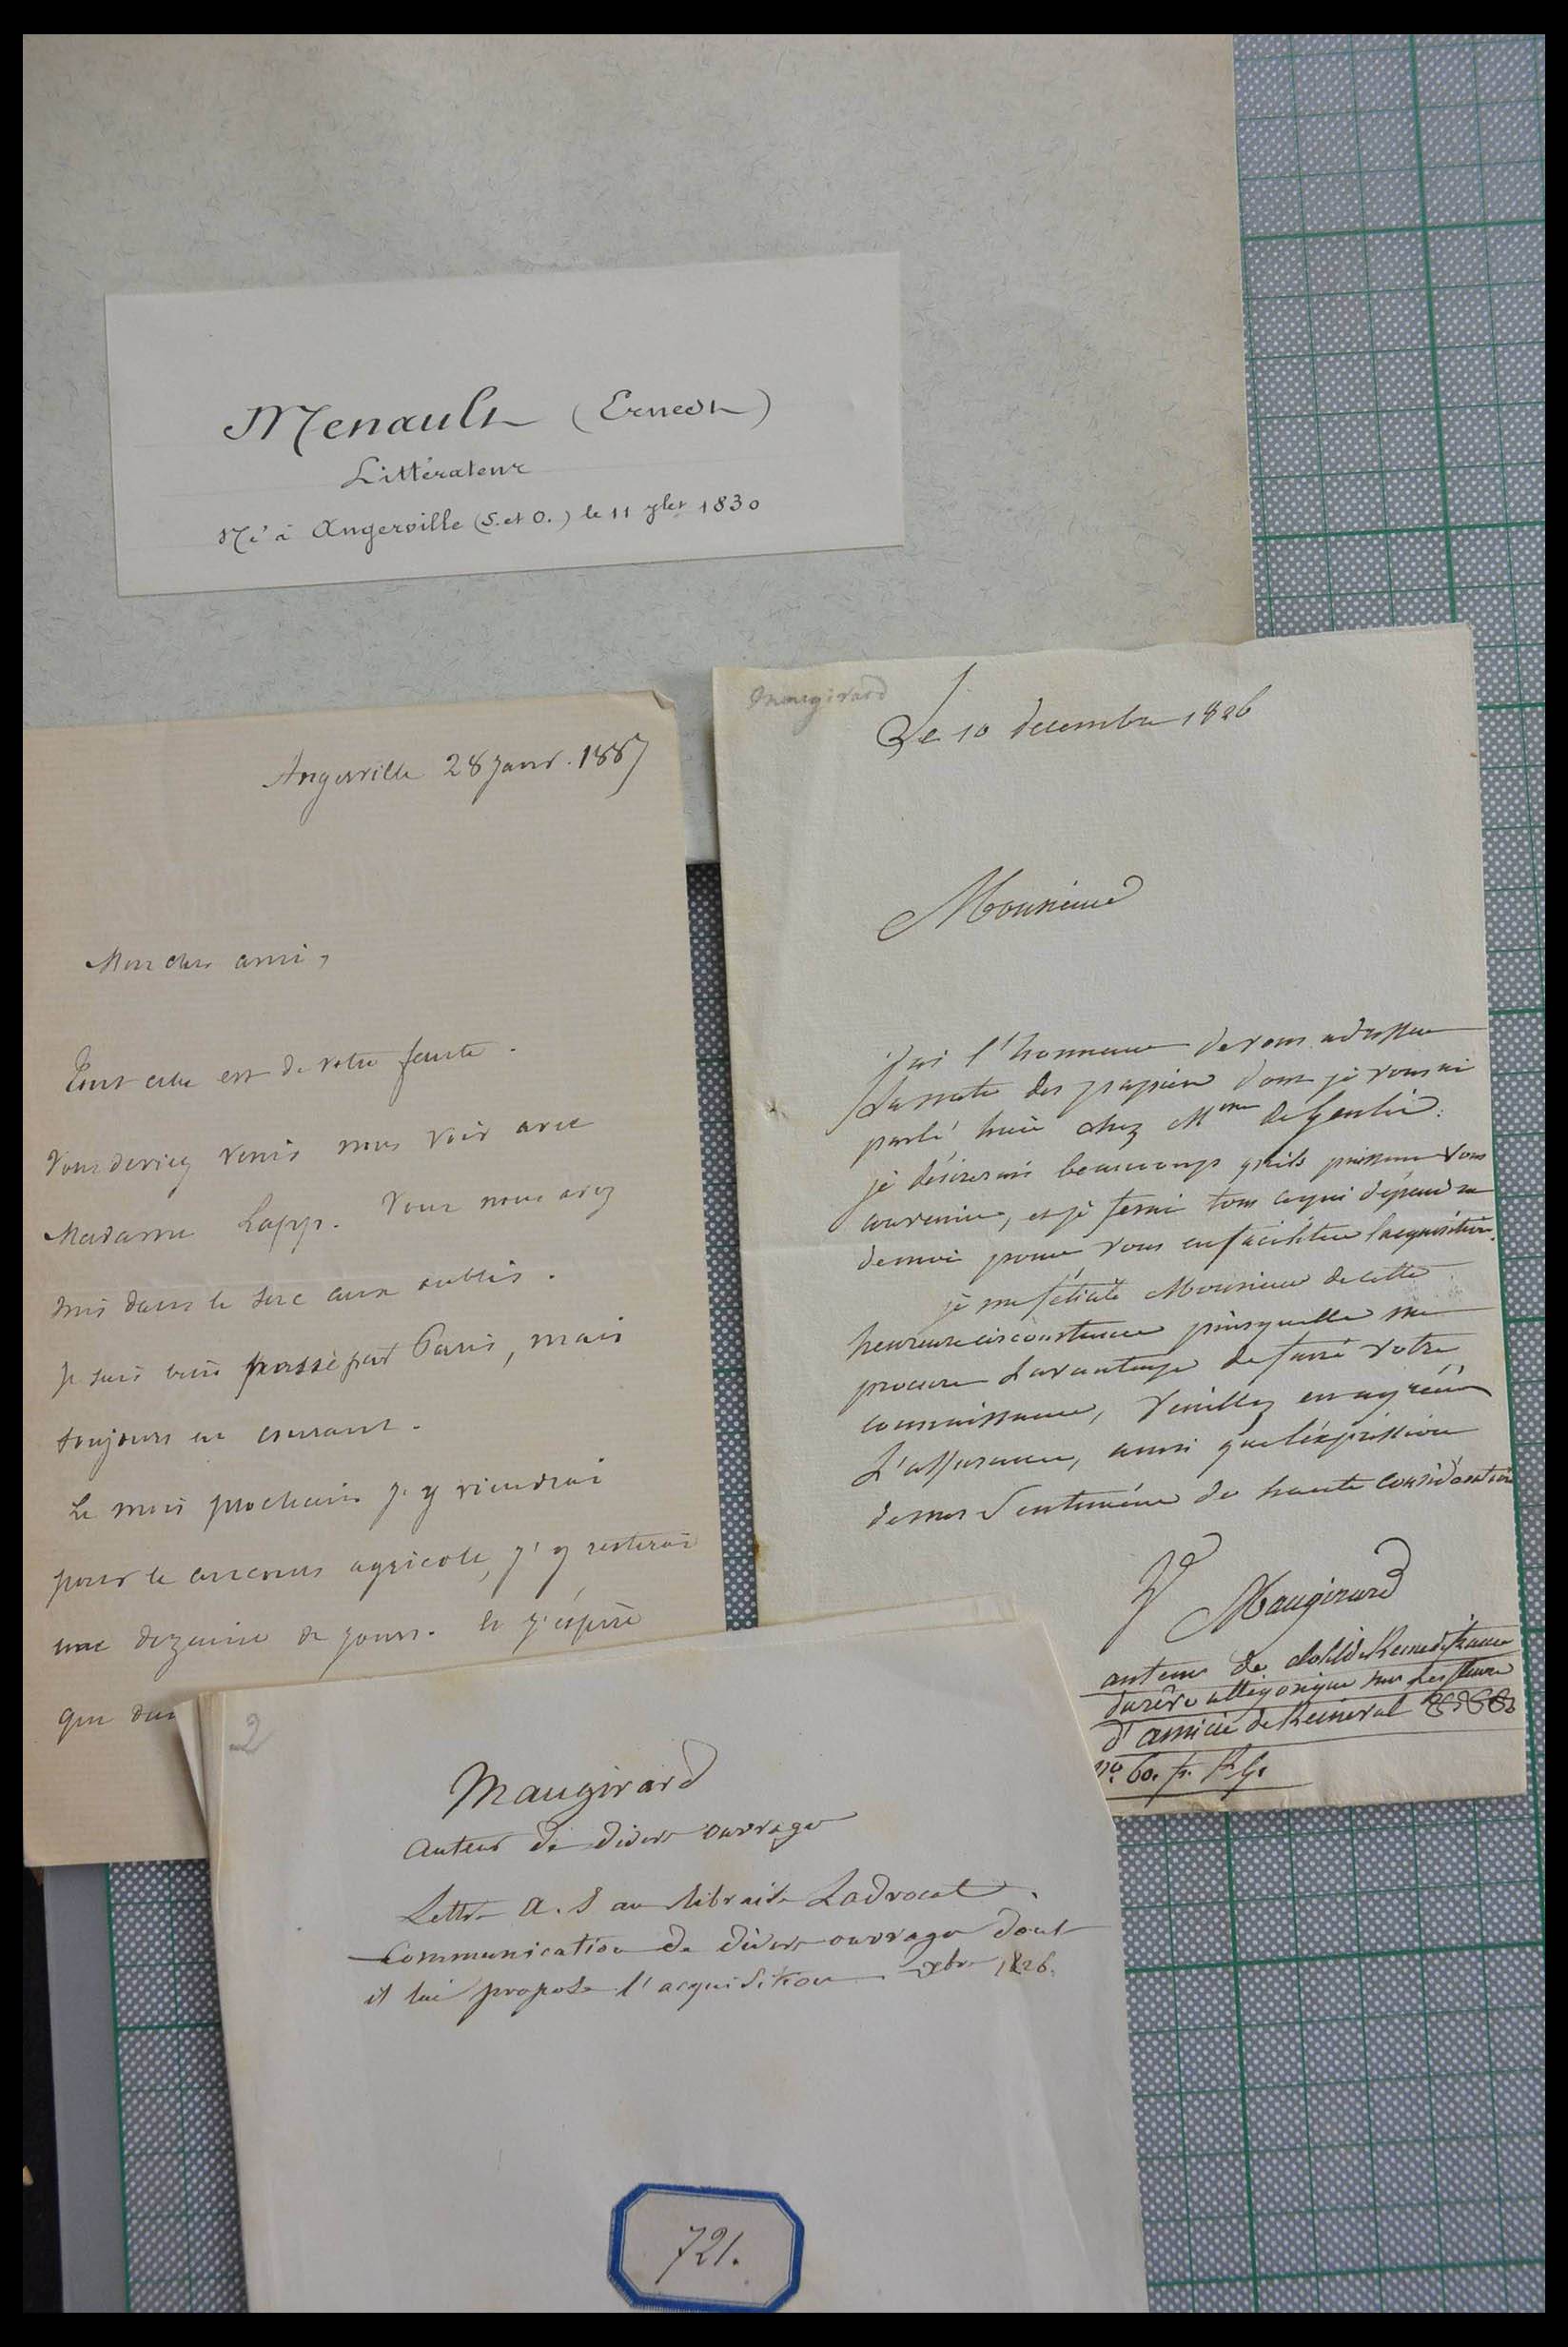 Menault (Ernest)
Littérateur
Né à Angerville (S. et O.) le 11 7bre 1830
Angerville 28 Janv. 1887
Mon cher ami,
Tout cela est de votre faute.
Vous deviez venir nous voir avec
Madame Lapp. Vous nous avez
mis dans le sac aux oublis.
Je suis bien passé par Paris, mais
toujours en courant.
Le mois prochain j'y viendrai
pour le concours agricole, j'y resterai
une dizaine de jours. et j'espère
que
Maugirard
Le 10 decembre 1826
Monsieur
J'ai l'honneur de vous adresser
la note des papiers dont je vous ai
parlé hier chez Mme de Genlis.
je désirerais beaucoup qu'ils puissent vous
convenir, et je ferai tout ce qui dépendra
de moi pour vous en faciliter l'acquisition.
je me félicite Monsieur de cette
heureuse circonstance puisquelle me
procure l'avantage de faire votre
connaissance, veuillez en agréer
L'assurance, ainsi que l'expression
de mes Sentimens de haute considération
Ve Maugirard
auteur de clotilde Reine de france
du rêve allégorique sur les fleurs
d'amicie de Reineval
no. 60.
2
Maugirard
auteur de divers ouvrages
Lettre a. s au libraire Ladvocat.
Communication de divers ouvrages dont
il lui propose l'acquisition. Xbre 1826.
721.